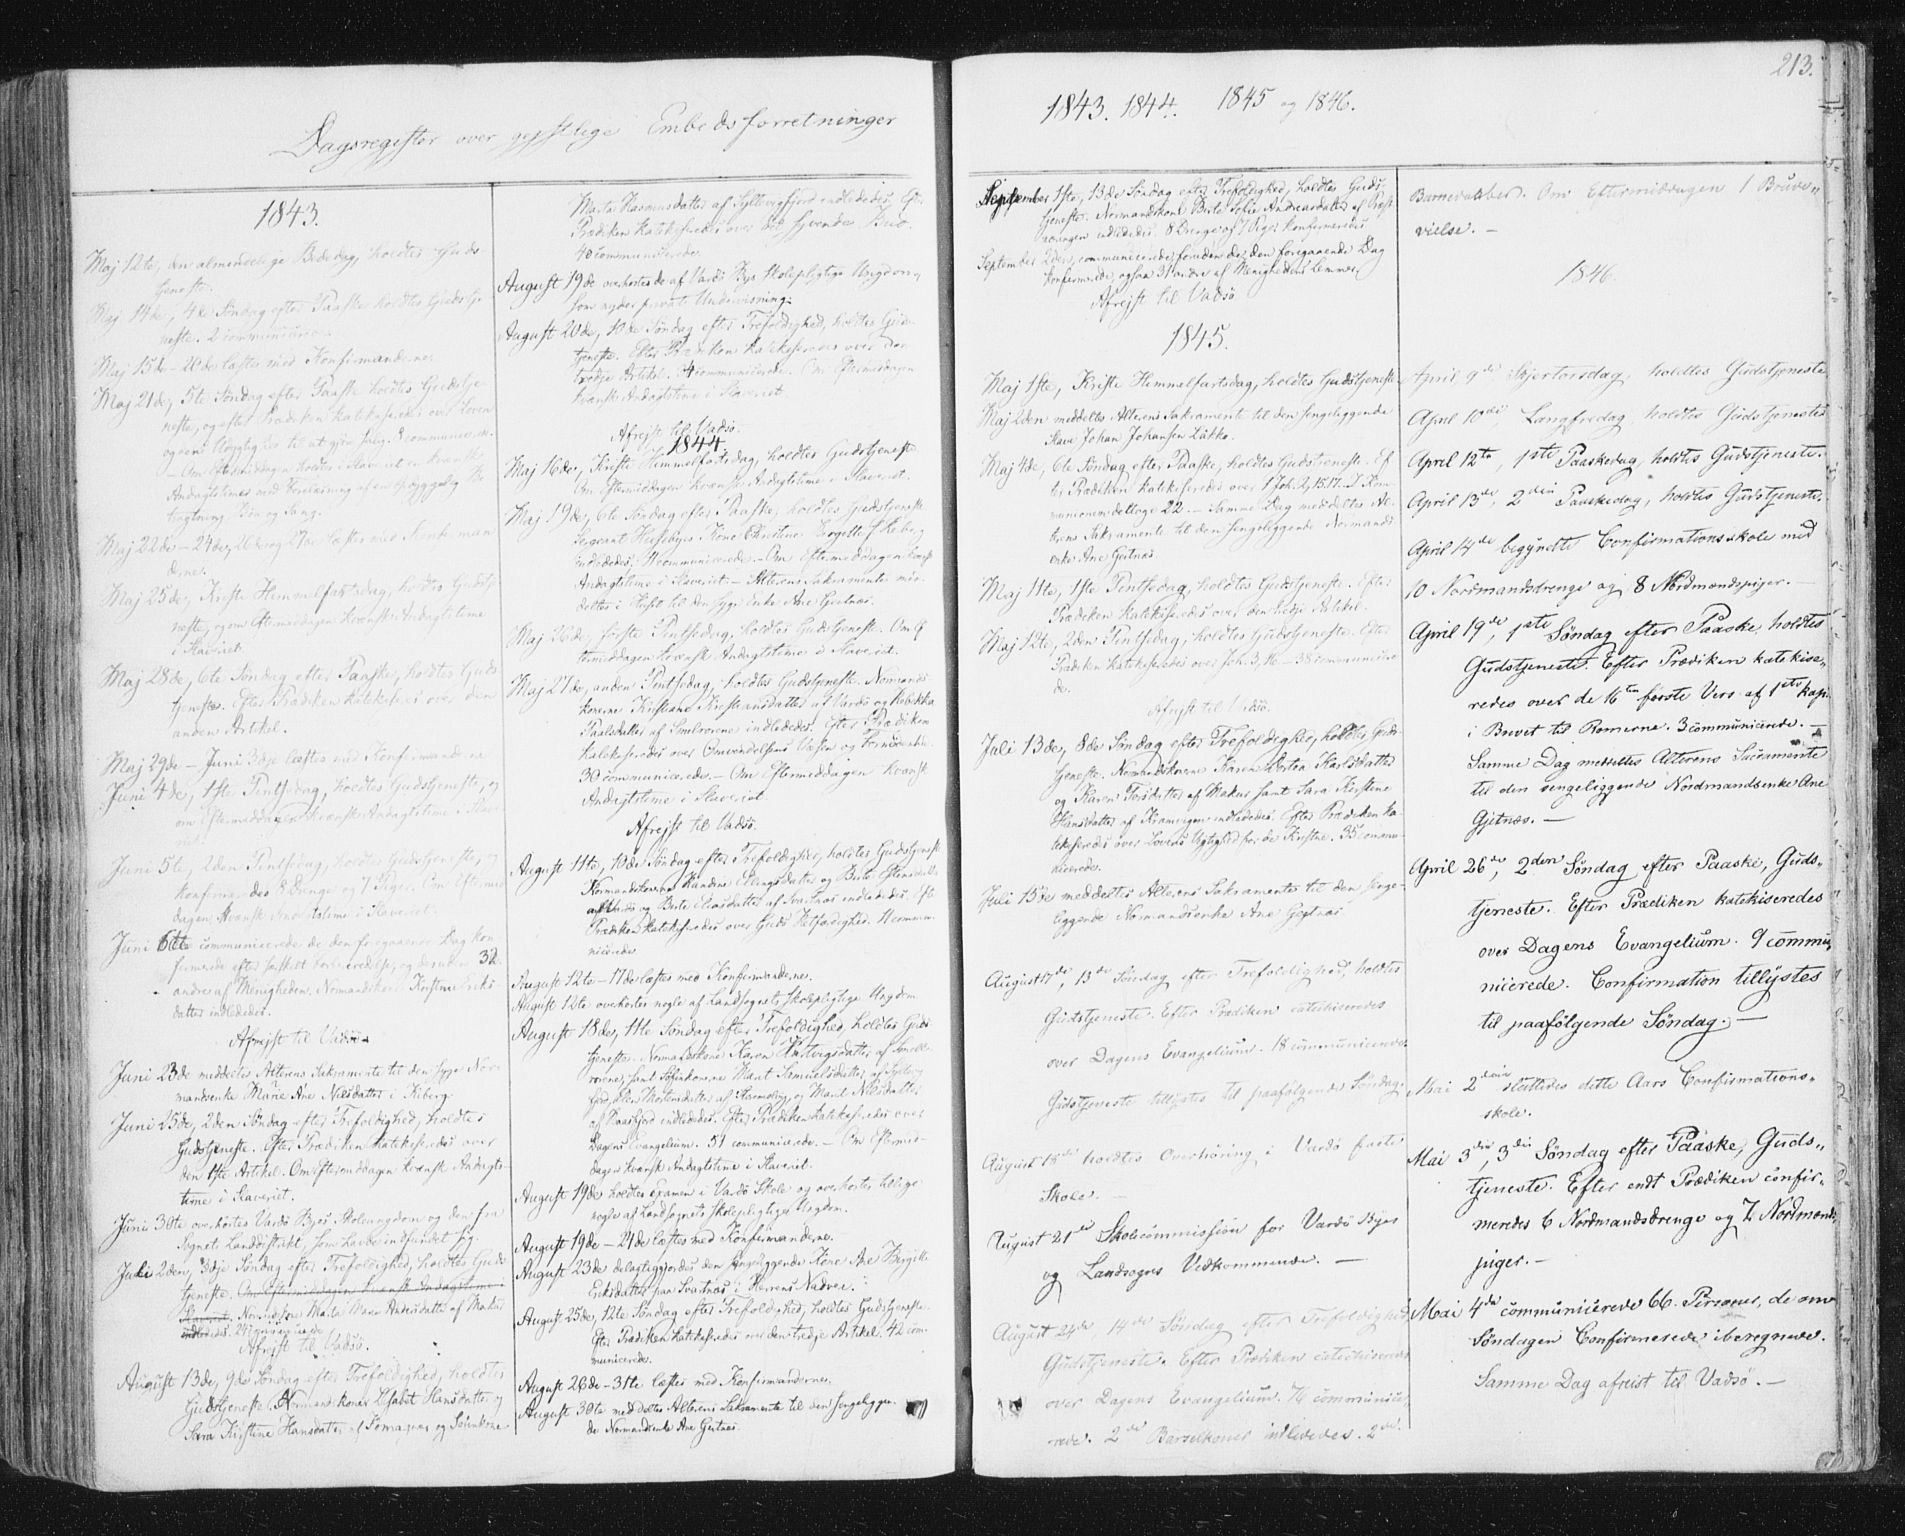 Dagsregister over gejstlige Embedsforretninger
1843.
Maj 12te, den almindelige Bededag, holdtes Guds
tjeneste.
Maj 14de, 4de Søndag efter Paaske holdtes Gudstje
neste. 2 communicerede.
Maj 15de - 20de læstes med Konfirmanderne.
Maj 21de, 5te Søndag efter Paaske holdtes Gudstje
neste, og efter Prædiken katekiseredes over Loven
og dens Udygtighed til at gjøre salig. communicerede.
- Om Eftermiddagen holdtes i Slaveriet en kvænsk
Andagtstime med Forelæsning af en opbyggelig Be
tragtning, Bøn og Sang.
Maj 22de - 24de, 26de og 27de læstes med Konfirman
derne.
Maj 25de, Kristi Himmelfartsdag, holdtes Gudstje
neste, og om Eftermiddagen kvænsk Andagtstime
i Slaveriet.
Maj 28de, 6te Søndag efter Paaske, holdtes Guds
tjeneste. Efter Prædiken katekiseredes over den
anden Artikel.
Maj 29de - Juni 3dje læstes med Konfirmanderne
Juni 4de, 1ste Pintsedag, holdtes Gudstjeneste, og
om Eftermiddagen kvænsk Andagtstime i Slave
riet.
Juni 5te, 2den Pintsedag, holdtes Gudstjeneste, og
konfirmeredes 8 Drenge og 7 Piger. Om Eftermid
dagen kvænsk Andagtstime i Slaveriet.
Juni 6te communicerede de den foregaaende Dag kon
firmerede efter forberedelse, og desuden 32
andre af Menigheden. Normandskonen Kirstine Eriks
datter indlededes.
Afrejst til Vadsø.
Juni 23de meddeltes Alterens Sakramente til den syge Nor
mandsenke Marie Ane Nilsdatter i Kiberg.
Juni 25de, 2den Søndag efter Trefoldighed, holdtes
Gudstjeneste. Efter Prædiken katekiseredes over
den 1ste Artikel. Om Eftermiddagen kvænsk Andagts
time i Slaveriet.
Juni 30te overhørtes Vardø Byes Skoleungdom og den fra
Sognets Landdistrikt, som havde indfundet sig.
Juli 2den, 3dje Søndag efter Trefoldighed, holdtes Guds
tjeneste. Om Eftermiddagen kvænsk Andagtstime i
Slaveriet. Normandskone Marta Marie Andersdatter af Makur
indlededes. communicerede
Afrejst til Vadsø.
August 13de, 9de Søndag efter Trefoldighed, holdtes
Gudstjeneste. Normandskoner Elisabet Hansdatter og
Sara Kirstine Hansdatter af og Søenkone
Marta Rasmusdatter af Syltevigfjord indlededes. Eft.
Prædiken katekiseredes over det syvende Bud.
40 communicerede.
August 19de overhørtes de af Vardø Byes skolepligtige Ungdom,
som nyder privat Undervisning.
August 20de, 10de Søndag efter Trefoldighed, holdtes Guds
tjeneste. Efter Prædiken katekiseredes over den
tredje Artikel. 4 communicerede. Om Eftermiddagen
kvænsk Andagtstime i Slaveriet.
Afrejst til Vadsø.
1844.
Maj 16de, Kristi Himmelfartsdag, holdtes Gudstjeneste
Om Eftermiddagen kvænsk Andagtstime i Slaveriet.
Maj 19de, 6te Søndag efter Paaske, holdtes Gudstjeneste
Sergeant Husebyes Kone Christine Torgette f. Heberg
indlededes. 4 communicerede. - Om Eftermiddagen kvænsk
Andagtstime i Slaveriet. - Alterens Sakramente med
deltes i Huset til den syge Enke Ane Gjetnæs.
Maj 26de, første Pintsedag, holdtes Gudstjeneste. Om Ef
termiddagen kvænsk Andagtstime i Slaveriet.
Maj 27de, anden Pintsedag, holdtes Gudstjeneste. Normands
konerne Kirstiane Kristiansdatter af Vardø og Rebekka
Paalsdatter af Smelrorene indlededes. Efter Prædiken
katekiseredes over Omvendelsens Væsen og Fornødenhed.
30 communicerede. - Om Eftermiddagen kvænsk
Andagtstime i Slaveriet.
Afrejst til Vadsø.
August 11te, 10de Søndag efter Trefoldighed, holdtes Gudstjeneste
Normandskonerne Karine Ellingsdatter og Berte
af Vardø og Berte Eliasdatter af Svartnæs indlededes. Eft.
Prædiken katekiseredes over Guds Retfærdighed. 14 commu
nicerede.
August 12te - 17de læstes med Konfirmanderne.
August 12te overhørtes nogle af Landsognets skolepligtige Ungdom
August 18de, 11te Søndag efter Trefoldighed, holdtes Guds
tjeneste. Normandskone Karen Hartvigsdatter af Smelro
rorene, samt Søfinkonerne Marit Samuelsdatter af Syltevig
fjord, Mortensdatter af og Marit Nilsdatter
af Baasfjord indlededes. Efter Prædiken katekiseredes over
Dagens Evangelium. 51 communicerede. - Om Eftermid
dagen kvænsk Andagtstime i Slaveriet.
August 19de holdtes Examen i Vardø Skole og overhørtes tillige
nogle af Landsognets skolepligtige Ungdom.
August 19de - 24de læstes med Konfirmanderne.
August 23de delagtiggjordes den sengeliggende Kone Ane Birgitte
Eriksdatter paa Svartnæs i Herrens Nadver.
August 25de, 12te Søndag efter Trefoldighed, holdtes Gudstjeneste.
Efter Prædiken katekiseredes over den tredje Artikel. 42 com
municerede.
August 26de - 31te læstes med Konfirmanderne.
August 30te meddeltes Alterens Sakramente til den sengeliggen
de Normandsenke Ane Gjetnæs.
213.
1843. 1844. 1845 og 1846.
September 1ste, 13de Søndag efter Trefoldighed, holdtes Guds
tjeneste. Normandskone Berte Sofie Andreasdatter af
indlededes. 8 Drenge og 7 Piger konfirmeredes
September 2den, communicerede, foruden de, den foregaaende Dag
konfirmerede, ogsaa 31 andre af Menighedens Lemmer.
Afrejst til Vadsø
1845.
Maj 1ste, Kristi Himmelfartsdag, holdtes Gudstjeneste
Maj 2den meddeltes Alterens Sakramente til den sengeliggende
Slave Johan Johansen Lakko.
Maj 4de, 6te Søndag efter Paaske, holdtes Gudstjeneste. Ef
ter Prædiken katekiseredes over 1 Joh. 2, 15-17. Kom
munionsmeddelte 22. - Samme Dag meddeltes Al
terens Sakramente til den sengeliggende Normands
enke Ane Gjetnæs
Maj 11te, 1ste Pintsedag, holdtes Gudstjeneste. Efter
Prædiken katekiseredes over den tredje Artikel.
Maj 12te, 2den Pintsedag, holdtes Gudstjeneste. Efter
Prædiken katekiseredes over Joh. 3, 16 - 38 communicere
de.
Afrejst til Vadsø.
Juli 13de, 8de Søndag efter Trefoldighed, holdtes Guds
tjeneste. Normandskonerne Karen Bertea Karlsdatter
og Karen Torsdatter af Makur samt Sara Kirstine
Hansdatter af Kramvigen indlededes. Efter Prædiken ka
tekiseredes over Lovens Ugyldighed for de Kristne. 35 commu
nicerede.
Juli 15de meddeltes Alterens Sakramente til den senge
liggende Normandsenke Ane Gjetnæs
August 17de, 13de Søndag efter Trefoldighed, holdtes
Gudstjeneste. Efter Prædiken catechiseredes
over Dagens Evangelium. 18 communicerede.
Gudstjeneste tillystes til paafølgende Søndag.
August 18de holdtes Overhøring i Vardø faste
Skole. -
August 21de Skolecommission for Vardø Byes
og Landsogns Vedkommende. -
August 24de, 14de Søndag efter Trefoldighed
Gudstjeneste. Efter Prædiken catechiseredes
over Dagens Evangelium. 76 communice,
rede. 2de Barselkoner indlededes. 2de
Barnedaaber. Om Eftermiddagen 1 Brude„
vielse. -
1846.
April 9de Skjertorsdag, holdtes Gudstjeneste
April 10de, Langfredag holdtes Gudstjeneste
April 12te, 1ste Paaskedag, holdtes Gudstjeneste.
April 13de, 2den Paaskedag, holdtes Gudstjeneste.
April 14de begyndte Confirmationsskole med
10 Nordmandsdrenge og 8 Nordmandspiger. -
April 19de, 1ste Søndag efter Paaske, holdtes
Gudstjeneste. Efter Prædiken katekise„
redes over de 16ten første Vers af 1ste Kap.
i Brevet til Romerne. 3 communicerede. -
Samme Dag meddeltes Alterens Sacramente
til den sengeliggende Nordmandsenke Ane
Gjetnæs. -
April 26de, 2den Søndag efter Paaske, Guds„
tjeneste. Efter Prædiken katekiseredes
over Dagens Evangelium. 9 commu„
nicerede. Confirmation tillystes
til paafølgende Søndag. -
Mai 2den sluttedes dette Aars Confirmations„
skole.
Mai 3die, 3die Søndag efter Paaske, Guds„
tjeneste. Efter endt Prædiken confir„
meredes 6 Nordmandsdrenge og 7 Nordmands
piger. -
Mai 4de communicerede 66 Personer, de om
Søndagen Confirmerede iberegnede.
Samme Dag afreist til Vadsø. -